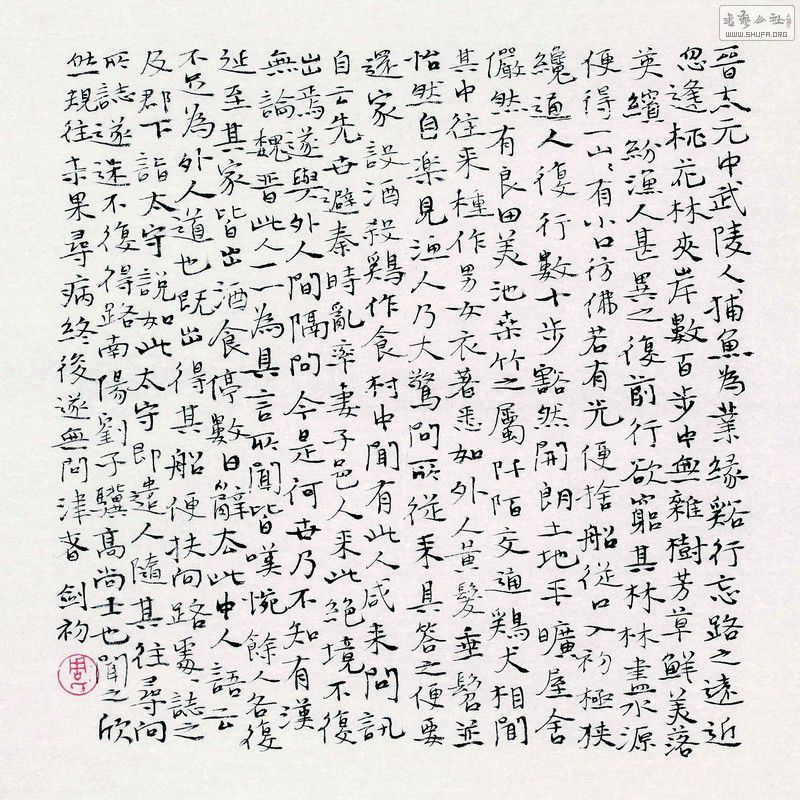 晉太元中武陵人捕魚為業緣谿行忘路之遠近
忽逢桃花林夾岸數百步中無雜樹芳草鮮美落
英繽紛漁人甚異之復前行欲窮其林林盡水源
便得一山〻有小口彷佛若有光便捨船從口入初極狹
纔通人復行數十步豁然開朗土地平曠屋舍
儼然有良田美池桑竹之屬阡陌交通鷄犬相聞
其中往來種作男女衣著悉如外人黃髮垂髫並
怡然自樂見漁人乃大驚問所從來具答之便要
還家設酒殺鷄作食村中聞有此人咸來問訊
自云先世避秦時亂率妻子邑人來此絕境不復
出焉遂與外人間隔問今是何世乃不知有漢
無論魏晉此人一一為具言所聞皆嘆惋餘人各復
延至其家皆出酒食停數日辭去此中人語云
不足為外人道也既出得其船便扶向路處〻誌之
及郡下詣太守說如此太守即遣人隨其往尋向
所誌遂迷不復得路南陽劉子驥高尚士也聞之欣
然規往未果尋病終後遂無問津者 劍初
書藝公社
WWW.SHUFA.ORG